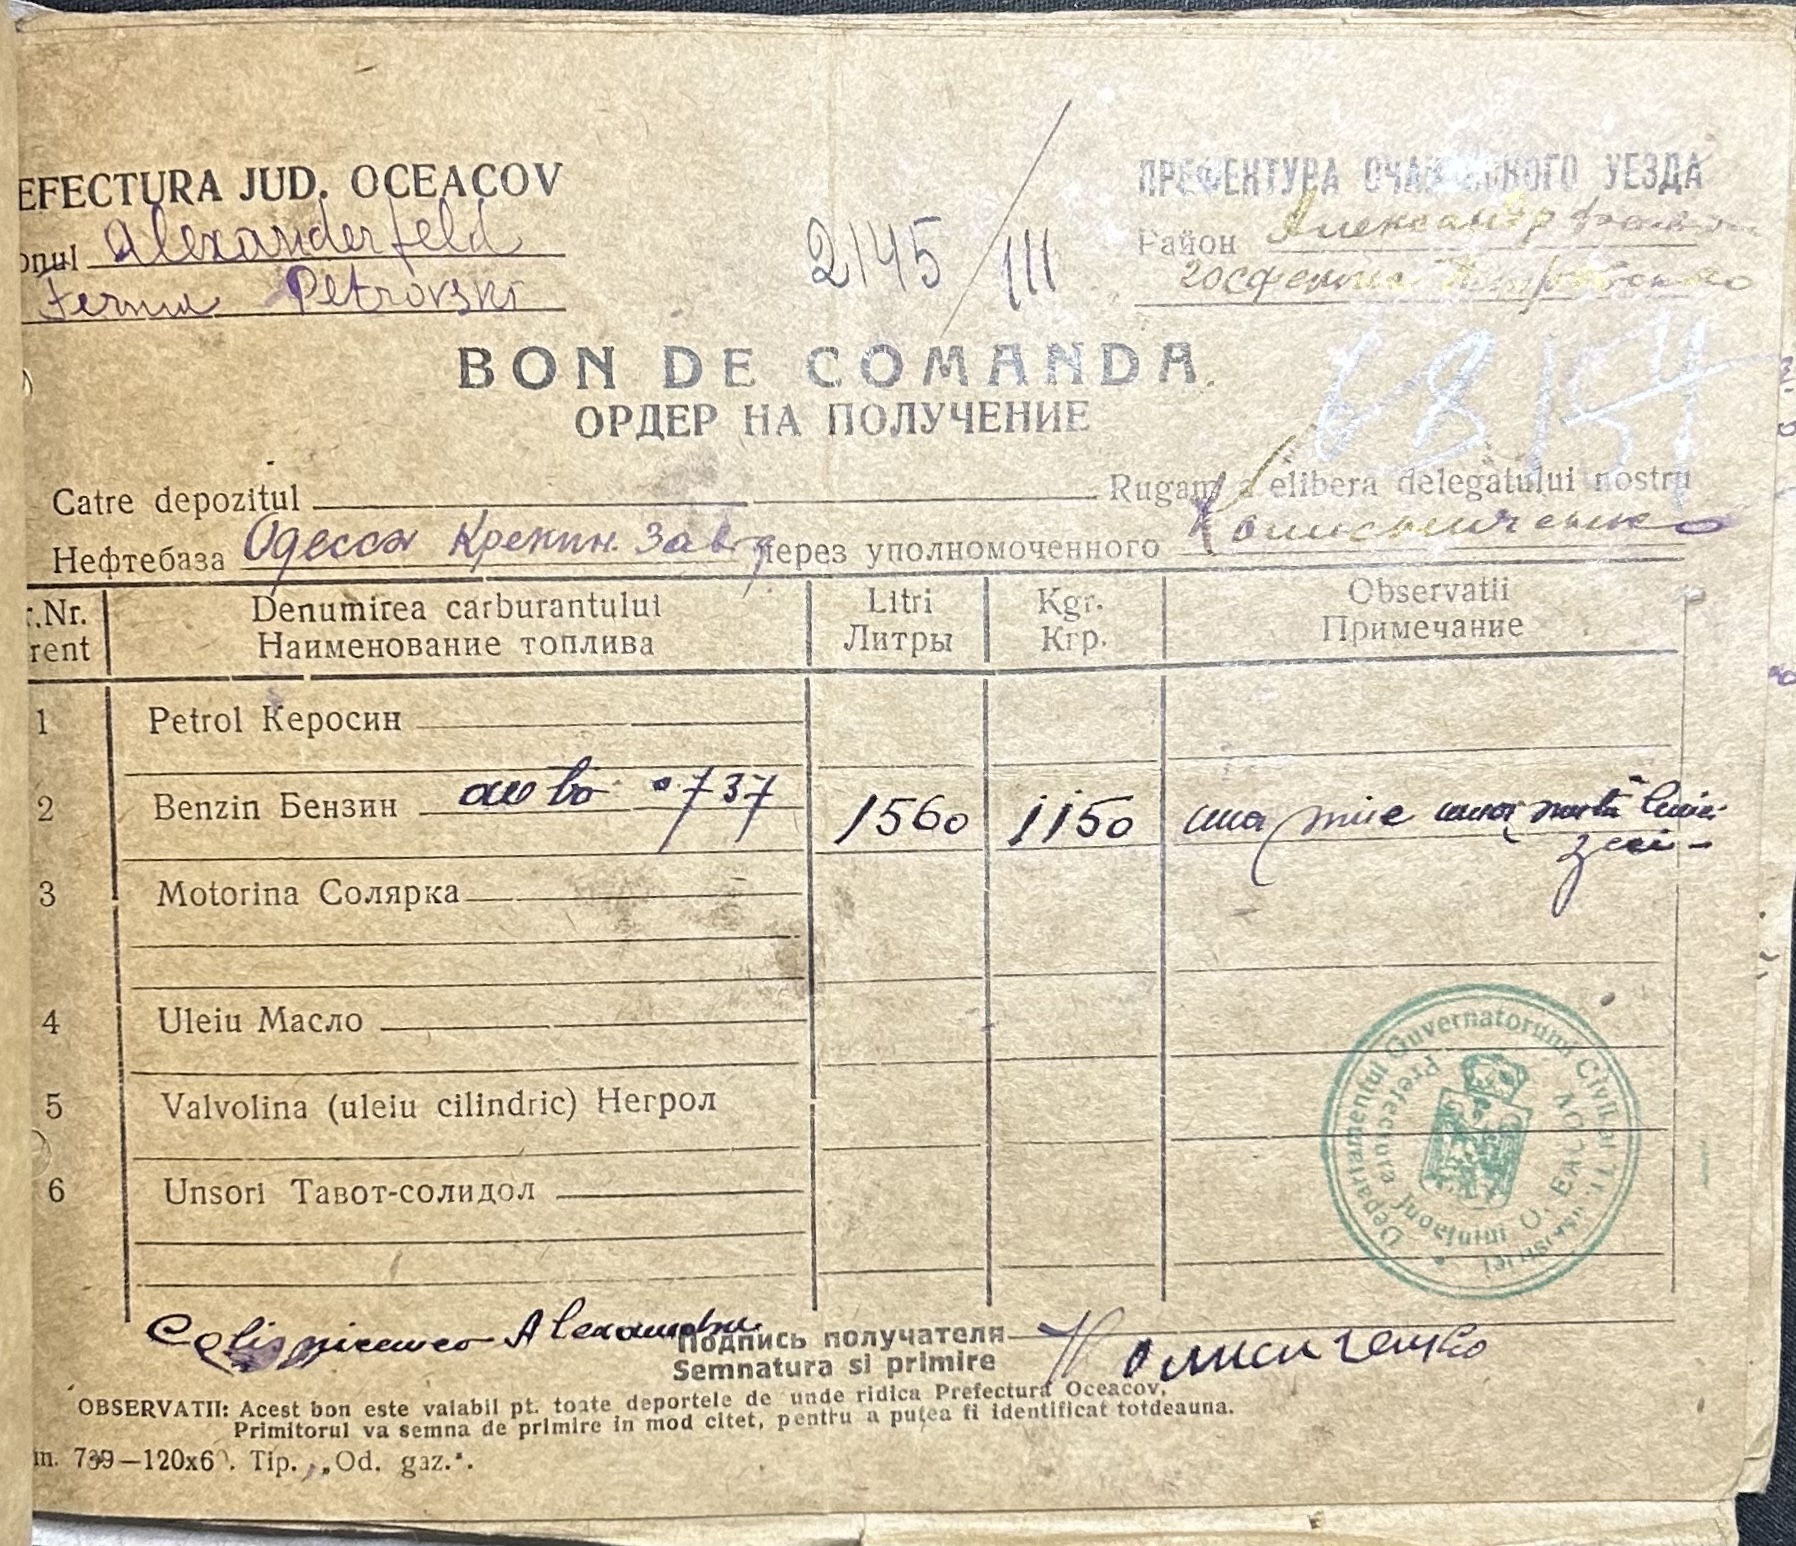 EFECTURA JUD. OCEACOV
ПРЕФЕКТУРА ОЧАКОВСКОГО УЕЗДА
onul Alexanderfeld
2145/III
Район Александрфельд
Ferma Petrovski
BON DE COMANDA
ОРДЕР НА ПОЛУЧЕНИЕ
Catre depozitul Rugam a elibera delegatului nostru
Нефтебаза Одесса Крекин. Зав через уполномоченного
r.Nr. Denumirea carburantului Litri Kgr. Observatii
rent Наименование топлива Литры Кгр. Примечание
1 Petrol Керосин
2 Benzin Бензин auto 737 1560 1150 una mie una sută cinci
zeci
3 Motorina Солярка
4 Uleiu Масло
5 Valvolina (uleiu cilindric) Негрол
6 Unsori Тавот-солидол
Departamentul Guvernatorului Civil al Tr.
Prefectura Judetului OCEACOV
Подпись получателя
Semnatura si primire
OBSERVATII: Acest bon este valabil pt. toate deportele de unde ridica Prefectura Oceacov.
Primitorul va semna de primire in mod citet, pentru a putea fi identificat totdeauna.
m. 739—120x6 . Tip. „Od. gaz.".